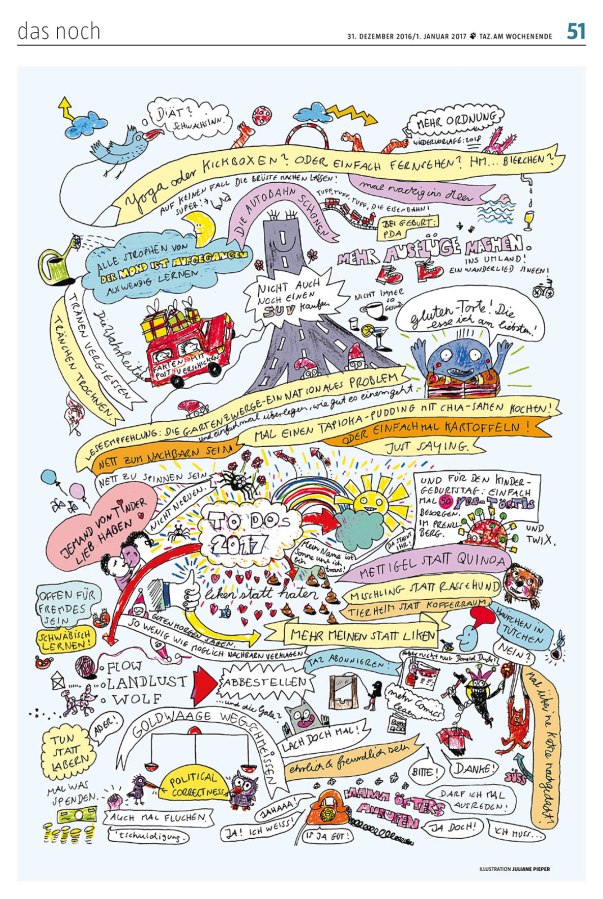 das noch
31. DEZEMBER 2016/1. JANUAR 2017 TAZ. AM WOCHENENDE 51
DIÄT?
SCHWACHSINN.
MEHR ORDNUNG
WIEDERVORLAGE: 2018
Yoga oder KICKBOXEN? ODER EINFACH FERNSEHEN? HM... BIERCHEN?
AUF KEINEN FALL DIE BRÜSTE MACHEN LASSEN!
SUPER!
mal nackig ins Meer
DIE AUTOBAHN SCHONEN
TUFF, TUFF, TUFF, DIE EISENBAHN!
BEI GEBURT:
PDA
ALLE STROPHEN VON
DER MOND IST AUFGEGANGEN
AUSWENDIG LERNEN.
MEHR AUSFLÜGE MACHEN.
INS UMLAND!
EIN WANDERLIED SINGEN!
NICHT AUCH
NOCH EINEN
SUV kaufen
NICHT IMMER
SO
TRÄNEN VERGIESSEN
TRÄNCHEN TROCKNEN.
Die Wahrheit
FAKTEN MIT
POST VERSCHICKEN
gluten-Torte! Die
esse ich am liebsten!
LESEEMPFEHLUNG: DIE GARTENZWERGE-EIN NATIONALES PROBLEM
und einfach mal überlegen, wie gut es einem geht.
MAL EINEN TAPIOKA-PUDDING MIT CHIA-SAMEN KOCHEN!
ODER EINFACH MAL KARTOFFELN!
JUST SAYING.
NETT ZUM NACHBARN SEIN
NETT ZU SPINNEN SEIN
NICHT NERVEN!
JEMAND VON TINDER
LIEB HABEN
TO DOs
2017
UND FÜR DEN KINDER-
GEBURTSTAG: EINFACH
MAL
BESORGEN.
IM PRENZL
BERG.
UND
TWIX.
DA STAUNT
IHR!
Mein Name ist
Sonne und ich
METTIGEL STATT QUINOA
MISCHLING STATT RASSEHUND
TIERHEIM STATT KOFFERRAUM!
liken statt haten
OFFEN FÜR
FREMDES
SEIN
SCHWÄBISCH
LERNEN!
GUTEN MORGEN SAGEN.
SO WENIG WIE MÖGLICH NACHBARN VERKLAGEN
MEHR MEINEN STATT LIKEN
HÜTCHEN IN
TÜTCHEN
NEIN?
FLOW
LANDLUST
WOLF
ABBESTELLEN
... und die Gala?
TAZ ABONNIEREN!
mehr Comics
lesen
ADE!
GOLDWAAGE WEGSCHMEISSEN
LACH DOCH MAL!
ehrlich & freundlich sein
mal über 'ne Katze nachgedacht?
TUN
STATT
LABERN
MAL WAS
SPENDEN.
POLITICAL
CORRECTNESS
BITTE!
DANKE!
SÜSS
AUCH MAL FLUCHEN.
'tschuldigung.
JAHAAA!
JA! ICH WEISS!
IS JA GUT!
MAMA ÖFTERS
ANRUFEN
DARF ICH MAL
AUSREDEN!
JA DOCH!
ICH MUSS...
ILLUSTRATION JULIANE PIEPER